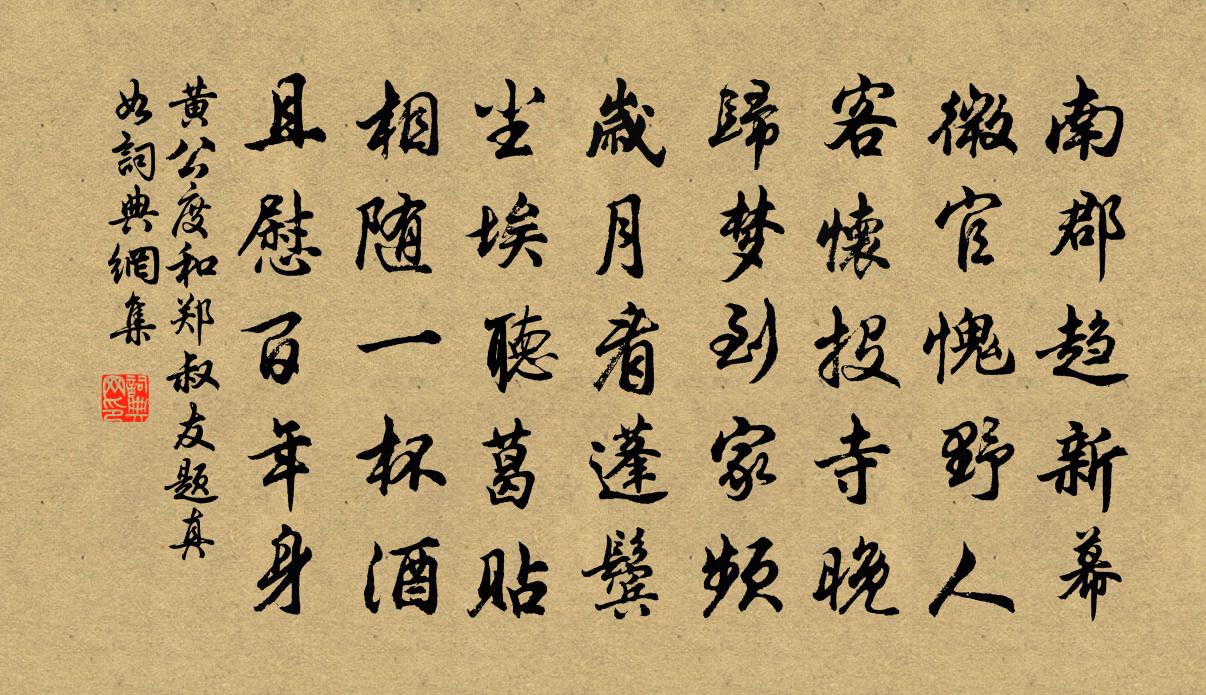 南郡趋新幕
微官愧野人
客懷投寺晚
歸梦到家频
歲月看蓬鬓
尘埃聽葛贴
相随一杯酒
且慰百年身
黄公度和郑叔友题真
如詞典網集
詞典網印